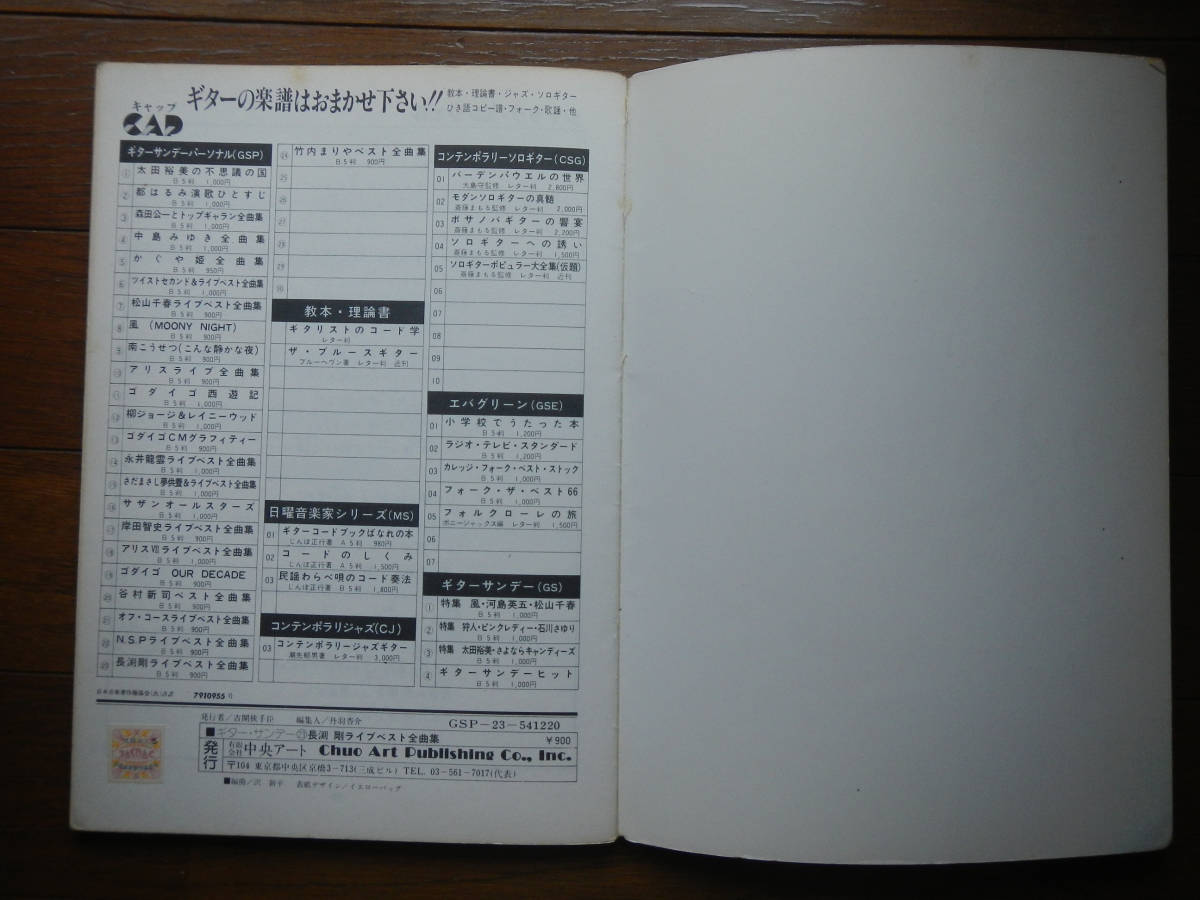 ギターの楽譜はおまかせ下さい!!
教本・理論書・ジャズ・ソロギター
ひき語コピー譜・フォーク・歌謡・他
キャップ
CAP
ギターサンデーパーソナル(GSP)
① 太田裕美の不思議の国
B5判 1,000円
② 都はるみ演歌ひとすじ
B5判 1,000円
③ 森田公一とトップギャラン全曲集
B5判 1,000円
④ 中島みゆき全曲集
B5判 1,000円
⑤ かぐや姫全曲集
B5判 950円
⑥ ツイストセカンド&ライブベスト全曲集
B5判 1,000円
⑦ 松山千春ライブベスト全曲集
B5判 900円
⑧ 風 (MOONY NIGHT)
B5判 900円
⑨ 南こうせつ(こんな静かな夜)
B5判 900円
⑩ アリスライブ全曲集
B5判 900円
⑪ ゴダイゴ西遊記
B5判 1,000円
⑫ 柳ジョージ&レイニーウッド
B5判 1,000円
⑬ ゴダイゴCMグラフィティー
B5判 900円
⑭ 永井龍雲ライブベスト全曲集
B5判 1,000円
⑮ さだまさし夢供養&ライブベスト全曲集
B5判 1,000円
⑯ サザンオールスターズ
B5判 1,000円
⑰ 岸田智史ライブベスト全曲集
B5判 900円
⑱ アリスⅦライブベスト全曲集
B5判 1,000円
⑲ ゴダイゴ OUR DECADE
B5判 900円
⑳ 谷村新司ベスト全曲集
B5判 900円
㉑ オフ・コースライブベスト全曲集
B5判 900円
㉒ N.S.Pライブベスト全曲集
B5判 900円
㉓ 長渕剛ライブベスト全曲集
B5判 900円
㉔ 竹内まりやベスト全曲集
B5判 900円
㉕
㉖
㉗
㉘
㉙
㉚
教本・理論書
ギタリストのコード学
レター判
ザ・ブルースギター
ブルーヘヴン著 レター判 近刊
日曜音楽家シリーズ(MS)
01 ギターコードブックばなれの本
じんぼ正行著 A5判 980円
02 コードのしくみ
じんぼ正行著 A5判 1,500円
03 民謡わらべ唄のコード奏法
じんぼ正行著 B5判 1,800円
コンテンポラリジャズ(CJ)
03 コンテンポラリージャズギター
潮先郁男著 レター判 3,000円
コンテンポラリーソロギター(CSG)
01 バーデンパウエルの世界
大島守監修 レター判 2,800円
02 モダンソロギターの真髄
斎藤まもる監修 レター判 2,000円
03 ボサノバギターの響宴
斎藤まもる監修 レター判 2,200円
04 ソロギターへの誘い
斎藤まもる監修 レター判 1,500円
05 ソロギターポピュラー大全集(仮題)
斎藤まもる監修 レター判 近刊
06
07
08
09
10
エバグリーン(GSE)
01 小学校でうたった本
B5判 1,200円
02 ラジオ・テレビ・スタンダード
B5判 1,200円
03 カレッジ・フォーク・ベスト・ストック
B5判 1,000円
04 フォーク・ザ・ベスト66
B5判 1,000円
05 フォルクローレの旅
ボニージャックス編 レター判 1,500円
06
07
ギターサンデー(GS)
① 特集 風・河島英五・松山千春
B5判 1,000円
② 特集 狩人・ピンクレディー・石川さゆり
B5判 1,000円
③ 特集 太田裕美・さよならキャンディーズ
B5判 1,000円
④ ギターサンデーヒット
B5判 1,000円
日本音楽著作権協会(出)許諾 7910955号
発行者/古閑 編集人/丹羽杏介 GSP-23-541220
■ギター・サンデー㉓長渕 剛ライブベスト全曲集 ¥900
発行 有限会社 中央アート Chuo Art Publishing Co., Inc.
〒104 東京都中央区京橋3-713(三成ビル) TEL. 03-561-7017(代表)
■編曲/沢 新平 表紙デザイン/イエローバッグ